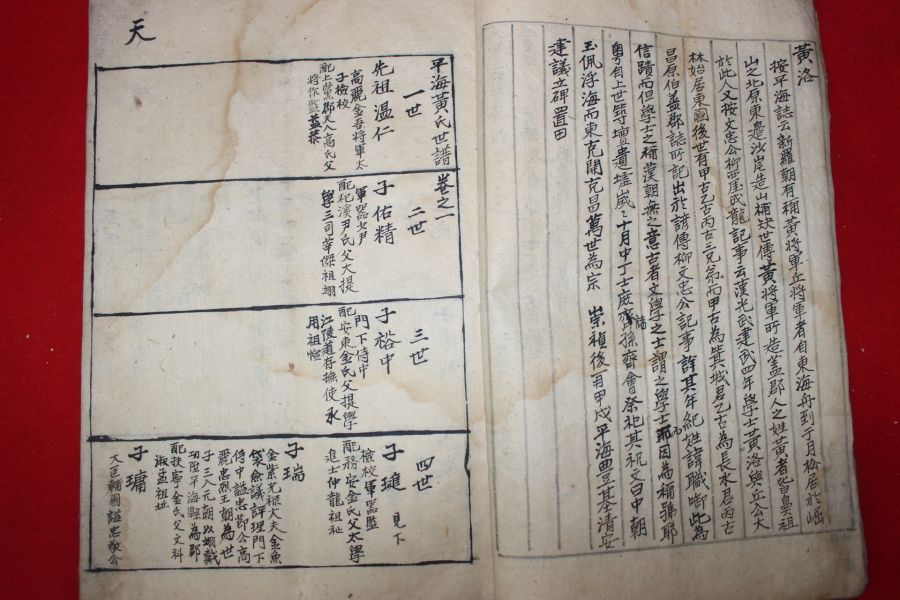 黃洛
按平海誌云新羅朝有稱黃將軍丘將軍者自東海舟到于月松居於崛
山之北原東邊沙尾造山補缺世傳黃將軍所造盖郡人之姓黃者皆其祖
於此人又按文忠公柳西厓成龍記事云漢光武建武四年學士黃洛與丘公大
林始居東國後世有甲古乙古丙古三兄弟而甲古為箕城君乙古為長水君丙古
昌原伯盖郡誌所記出於諺傳柳文忠公記事詳其年紀姓諱職啣此為
信蹟而但學士之稱漢朝無之意古者文學之士謂之學士耶因為稱號耶
粤自上世築壇遺墟歲十月中丁士庶諸孫齊會祭祀其祝文曰中朝
玉佩浮海而東克開克昌萬世為宗 崇禎後再甲戌平海豊基清安
建議立碑置田
天
平海黃氏世譜 卷之一
一世
先祖溫仁
高麗金吾將軍太
子檢校
配上黨郡夫人高氏父
將作監益恭
二世
子佑精
軍器少尹
配杞溪尹氏父大提
學三司莘傑祖翊
三世
子裕中
門下侍中
配安東金氏父提學
江陵道存撫使永
用祖愷
四世
子璡 見下
檢校軍器監
配務安金氏父太學
進士仲龍祖祉
子瑞
金紫光祿大夫金魚
袋僉議評理門下
侍中謚忠節公高
麗忠烈王朝為世
子三入元朝以翊戴
功陞平海縣為郡
配扶寧金氏父文科
淑孟祖址
子璛
大匡輔國謚忠敬公